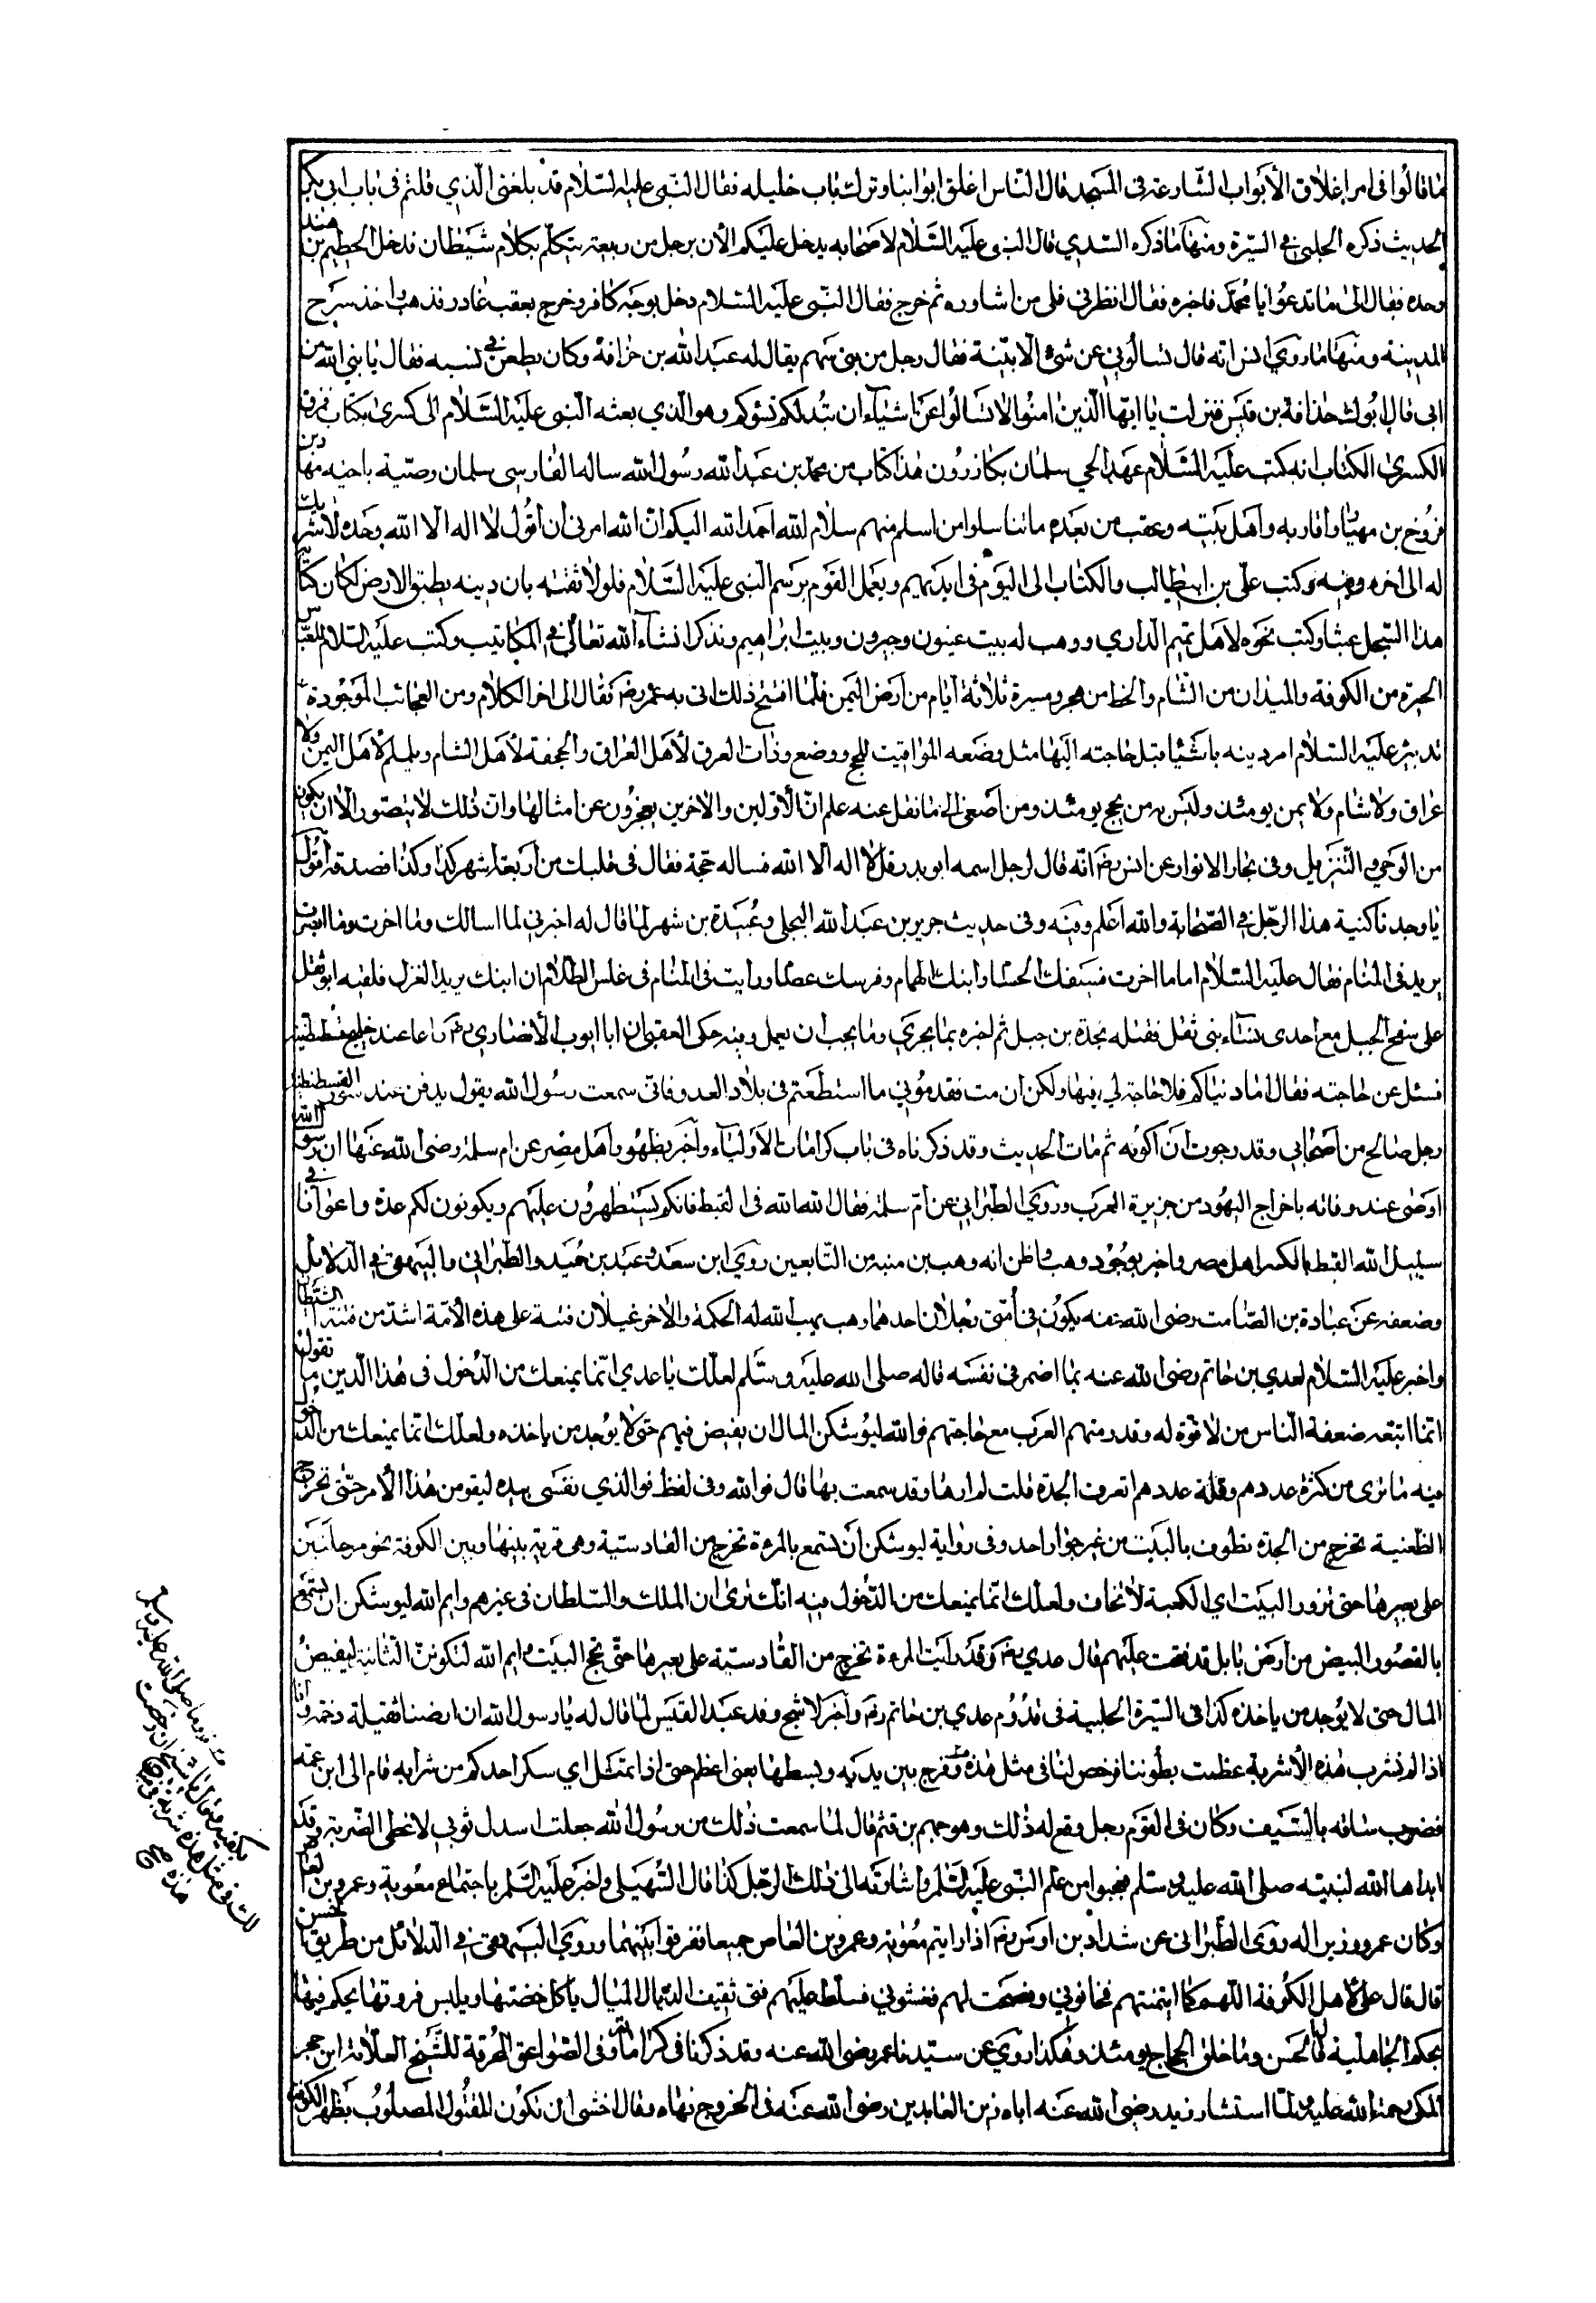 ما قالوا في امر اغلاق الأبواب الشارعة في المسجد قال الناس اغلق ابوابنا وترك باب خليله فقال النبي عليه السلام قد بلغني الذي قلتم في باب ابي بكر
الحديث ذكره الحلبي في السيرة ومنها ما ذكره السدي قال النبي عليه السلام لاصحابه يدخل عليكم الأن برجل من ربيعة يتكلم بكلام شيطان فدخل الحطيم بن هند
وحده فقال الى ما تدعوا يا محمد فاخبره فقال انظرني فلي من اشاوره ثم خرج فقال النبي عليه السلام دخل بوجه كافر وخرج بعقب غادر فذهب واخذ سرح
المدينة ومنها ما روي انس انه قال تسألوني عن شئ الا بينته فقال رجل من بني سهم يقال له عبد الله بن حذافة وكان يطعن في نسبه فقال يا نبي الله من
ابي قال ابوك حذافة بن قيس فنزلت يا ايها الذين امنوا لا تسألوا عن اشياء ان تبد لكم تسؤكم وهو الذي بعثه النبي عليه السلام الى كسرى بكتاب فمزق
الكسرى الكتاب انه كتب عليه السلام عهدا لحي سلمان بكازرون هذا كتاب من محمد بن عبد الله رسول الله ساله الفارسي سلمان وصية باخيه مهاد بن
فروخ بن مهيار واقاربه واهل بيته وعقب من بعده ما تناسلوا من اسلم منهم سلام الله احمد الله اليكم ان الله امرني ان اقول لا اله الا الله وحده لا شريك
له الى اخره وفيه وكتب علي بن ابيطالب والكتاب الى اليوم في ايديهم ويعمل القوم برسم النبي عليه السلام فلولا ثقته بان دينه يطبق الارض لكان كتب
هذا السجل عبثا وكتب نحوه لاهل تميم الداري ووهب له بيت عينون وجيرون وبيت ابراهيم ونذكر انشاء الله تعالى في المكاتيب وكتب عليه السلام للعباس
الحيرة من الكوفة والميدان من الشام والخط من هجر ومسيرة ثلاثة ايام من ارض اليمن فلما افتتح ذلك اتى به عمر رضه فقال الى اخر الكلام ومن العجائب الموجودة
تدبيره عليه السلام امر دينه باشياء قبل حاجته اليها مثل وضعه المواقيت للحج ووضع وذات العرق لأهل العراق والجحفة لأهل الشام ويلملم لأهل اليمن ولا
عراق ولا شام ولا يمن يومئذ وليس من يحج يومئذ ومن اصغى الى ما نقل عنه علم ان الأولين والاخرين يعجزون عن امثالها وان ذلك لا يتصور الا ان يكون
من الوحي والتنزيل وفي بحار الانوار عن انس رضه انه قال لرجل اسمه ابو بدر قل لا اله الا الله فساله حجة فقال في قلبك من اربعة اشهر كذا وكذا فصدقه اقول
ما وجدنا كنية هذا الرجل في الصحابة والله اعلم وفيه وفي حديث جرير بن عبد الله البجلي وعبيدة بن شهر لما قال له اخبرني لما اسالك وما اخرت وما ابصرت
يريد في المنام فقال عليه السلام اما ما اخرت فسيفك الحسام وابنك الهمام وفرسك عصام ورايت في المنام في غلس الظلام ان ابنك يريد الغزل فلقيه ابو ثعل
على سفح الجبل مع احدى نساء بني ثعل فقتله نجدة بن جبل ثم اخبره بما يجري وما يجب ان يعمل وفيه حكى العقبى ان ابا ايوب الأنصاري رضه عند خليج قسطنطنية
فسئل عن حاجته فقال اما دنياكم فلا حاجة لي فيها ولكن ان مت فقدموني ما استطعتم في بلاد العدو فاني سمعت رسول الله يقول يدفن عند سور القسطنطنية
رجل صالح من اصحابي وقد رجوت ان اكونه ثم مات الحديث وقد ذكرناه في باب كرامات الأولياء واخبر بظهور اهل مصر عن ام سلمة رضى الله عنها ان رسول الله
اوصى عند وفاته باخراج اليهود من جزيرة العرب وروي الطبراني عن ام سلمة فقال الله الله في القبط فانكم ستظهرون عليهم ويكونون لكم عدة واعوانا في
سبيل الله القبط بالكسر اهل مصر واخبر بوجود وهب واظن انه وهب بن منبه من التابعين روي ابن سعد وعبد بن حميد والطبراني والبيهقي في الدلائل
وضعفه عن عبادة بن الصامت رضى الله عنه يكون في أمتي رجلان احدهما وهب يهب الله له الحكمة والاخر غيلان فتنة على هذه الأمة اشد من فتنة الشيطان
واخبر عليه السلام لعدي بن حاتم رضى الله عنه بما اضمر في نفسه قاله صلى الله عليه وسلم لعلك يا عدي انما يمنعك من الدخول في هذا الدين ما تقول
انما اتبعه ضعفة الناس من لا قوة له وقد رمتهم العرب مع حاجتهم فوالله ليوشكن المال ان يفيض فيهم حتى لا يوجد من ياخذه ولعلك انما يمنعك من الدخول
فيه ما ترى من كثرة عددهم وقلة عددهم اتعرف الحيرة قلت لم ارها وقد سمعت بها قال فوالله وفي لفظ فوالذي نفسي بيده ليقومن هذا الأمر حتى تخرج
الظعينة تخرج من الحيرة تطوف بالبيت من غير جوار احد وفي رواية ليوشكن ان تسمع بالمرءة تخرج من القادسية وهي قرية بينها وبين الكوفة نحو مرحلتين
على بعيرها حتى تزور البيت اي الكعبة لا تخاف ولعلك انما يمنعك من الدخول فيه انك ترى ان الملك والسلطان في غيرهم وايم الله ليوشكن ان تسمع
بالقصور البيض من ارض بابل قد فتحت عليهم قال عدي رضه وقد رايت المرءة تخرج من القادسية على بعيرها حتى تحج البيت وايم الله لتكونن الثانية ليفيض
المال حتى لا يوجد من ياخذه كذا في السيرة الحلبية في قدوم عدي بن حاتم رضه واخبر لاشج وفد عبد القيس لما قال له يا رسول الله ان ارضنا ثقيلة وخمة وانا
اذا لم نشرب هذه الأشربة عظمت بطوننا فرخص لنا في مثل هذه وفرج بين يديه وبسطها يعني اعظم حتى اذا تمثل اي سكر احدكم من شرابه قام الى ابن عمه
فضرب ساقه بالسيف وكان في القوم رجل وقع له ذلك وهو جهم بن قثم قال لما سمعت ذلك من رسول الله جعلت اسدل ثوبي لاغطى الضربة وقد
ابداها الله لنبيه صلى الله عليه وسلم فعجبوا من علم النبي عليه السلم واشارته الى ذلك الرجل كذا قال السهيلي واخبر عليه السلم باجتماع معوية وعمرو بن العاص
وكان عمرو وزيرا له روى الطبراني عن شداد بن اوس رضه اذا رايتم معوية وعمرو بن العاص جميعا ففرقوا بينهما وروي البيهقي في الدلائل من طريق الحسن
قال قال علي لأهل الكوفة اللهم كما ايتمنتهم فخانوني ونصحت لهم فغشوني فسلط عليهم فتى ثقيف الذيال الميال ياكل خضرتها ويلبس فروتها يحكم فيها
بحكم الجاهلية قال الحسن وما خلق الحجاج يومئذ وهكذا روي عن سيدنا عمر رضى الله عنه وقد ذكرنا في كراماته وفي الصواعق المحرقة للشيخ العلامة ابن حجر
المكي رحمة الله عليه ولما استشار زيد رضى الله عنه اباه زين العابدين رضى الله عنه في الخروج نهاه وقال اخشى ان تكون المقتول المصلوب بظهر الكوفة